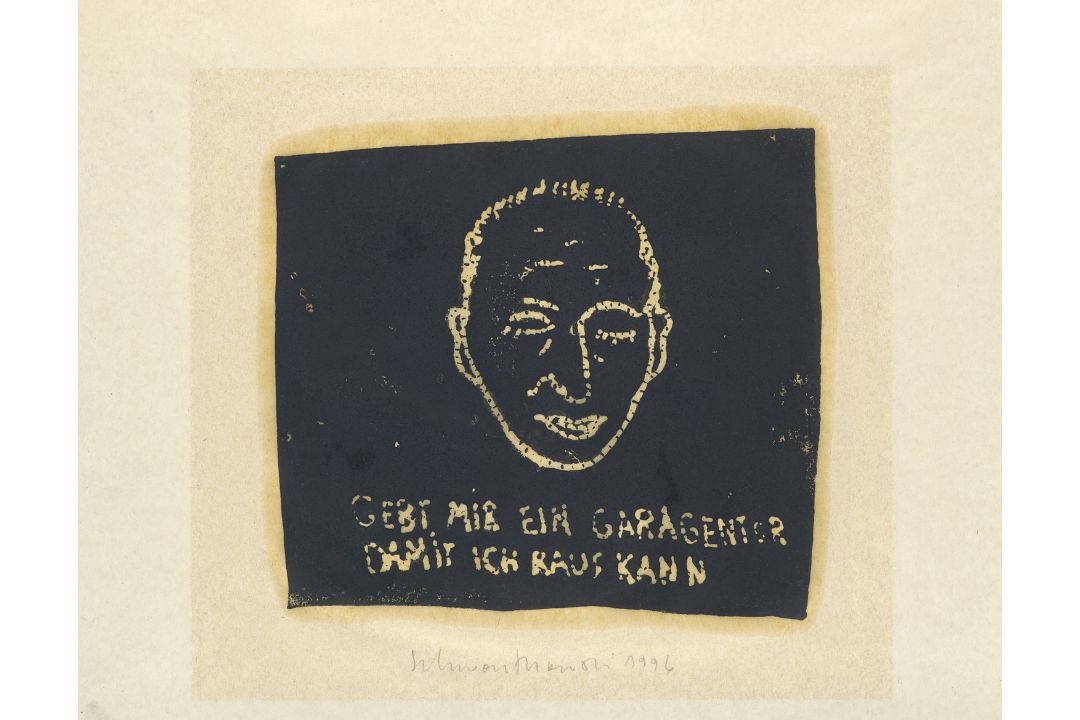 GEBT MIR EIN GARAGENTOR
DAMIT ICH RAUS KANN
1996